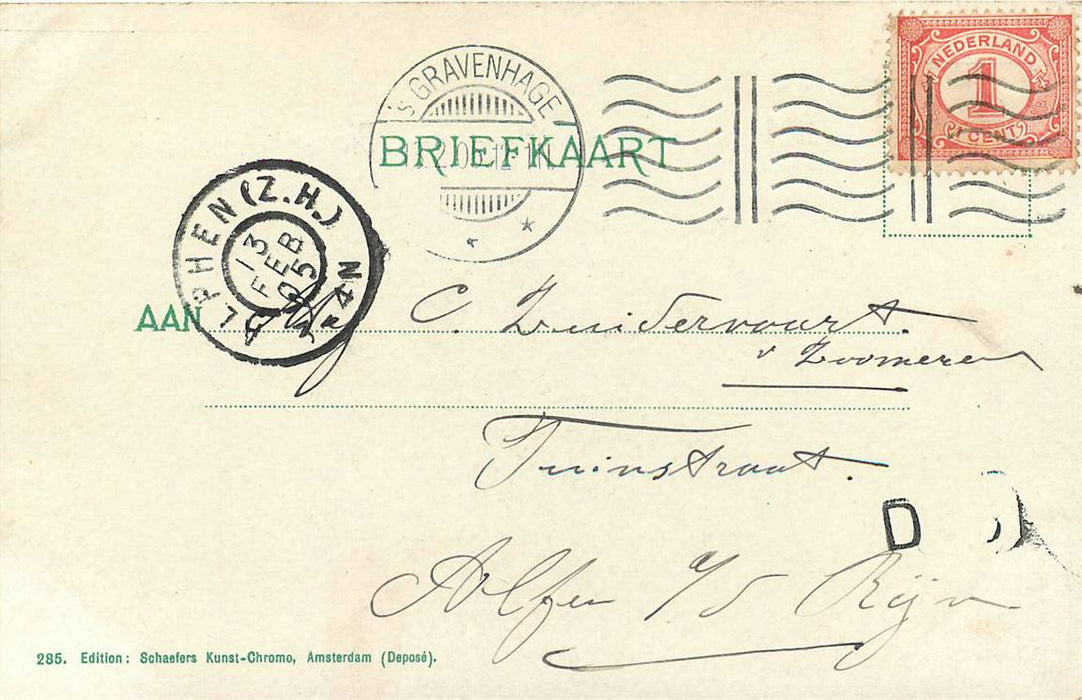 NEDERLAND
1
1 CENT
'S GRAVENHAGE
BRIEFKAART
LPHEN (Z.H.)
13
FEB
05
4N
AAN
C. Zuidervaart.
v Zoomeren
Tuinstraat.
D
Alfen a/d Rijn
285. Edition: Schaefers Kunst-Chromo, Amsterdam (Deposé).